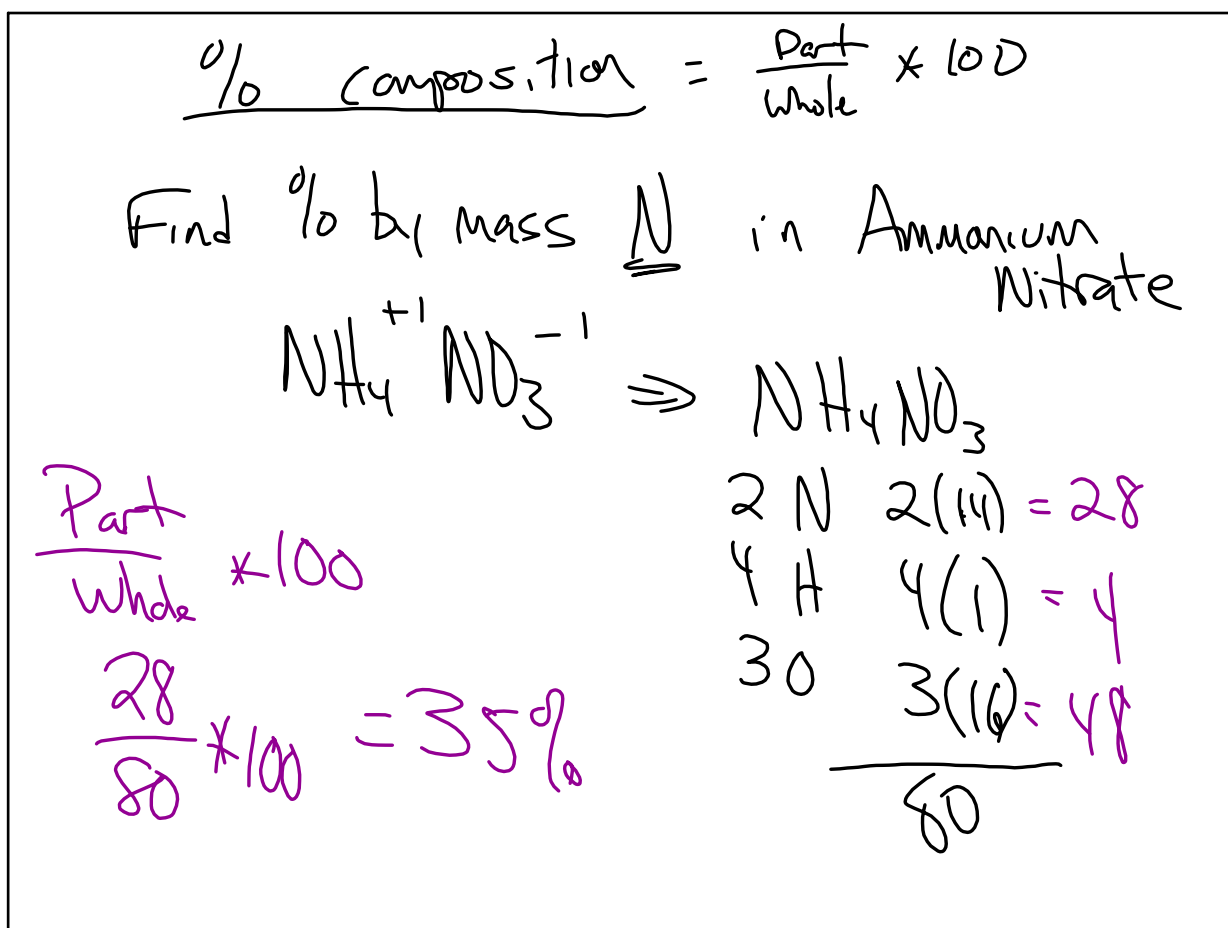 % composition = Part/Whole * 100
Find % by mass N in Ammonium
Nitrate
NH₄⁺¹ NO₃⁻¹ ⇒ NH₄NO₃
2 N 2(14) = 28
4 H 4(1) = 4
3 O 3(16) = 48
80
Part/Whole * 100
28/80 * 100 = 35%